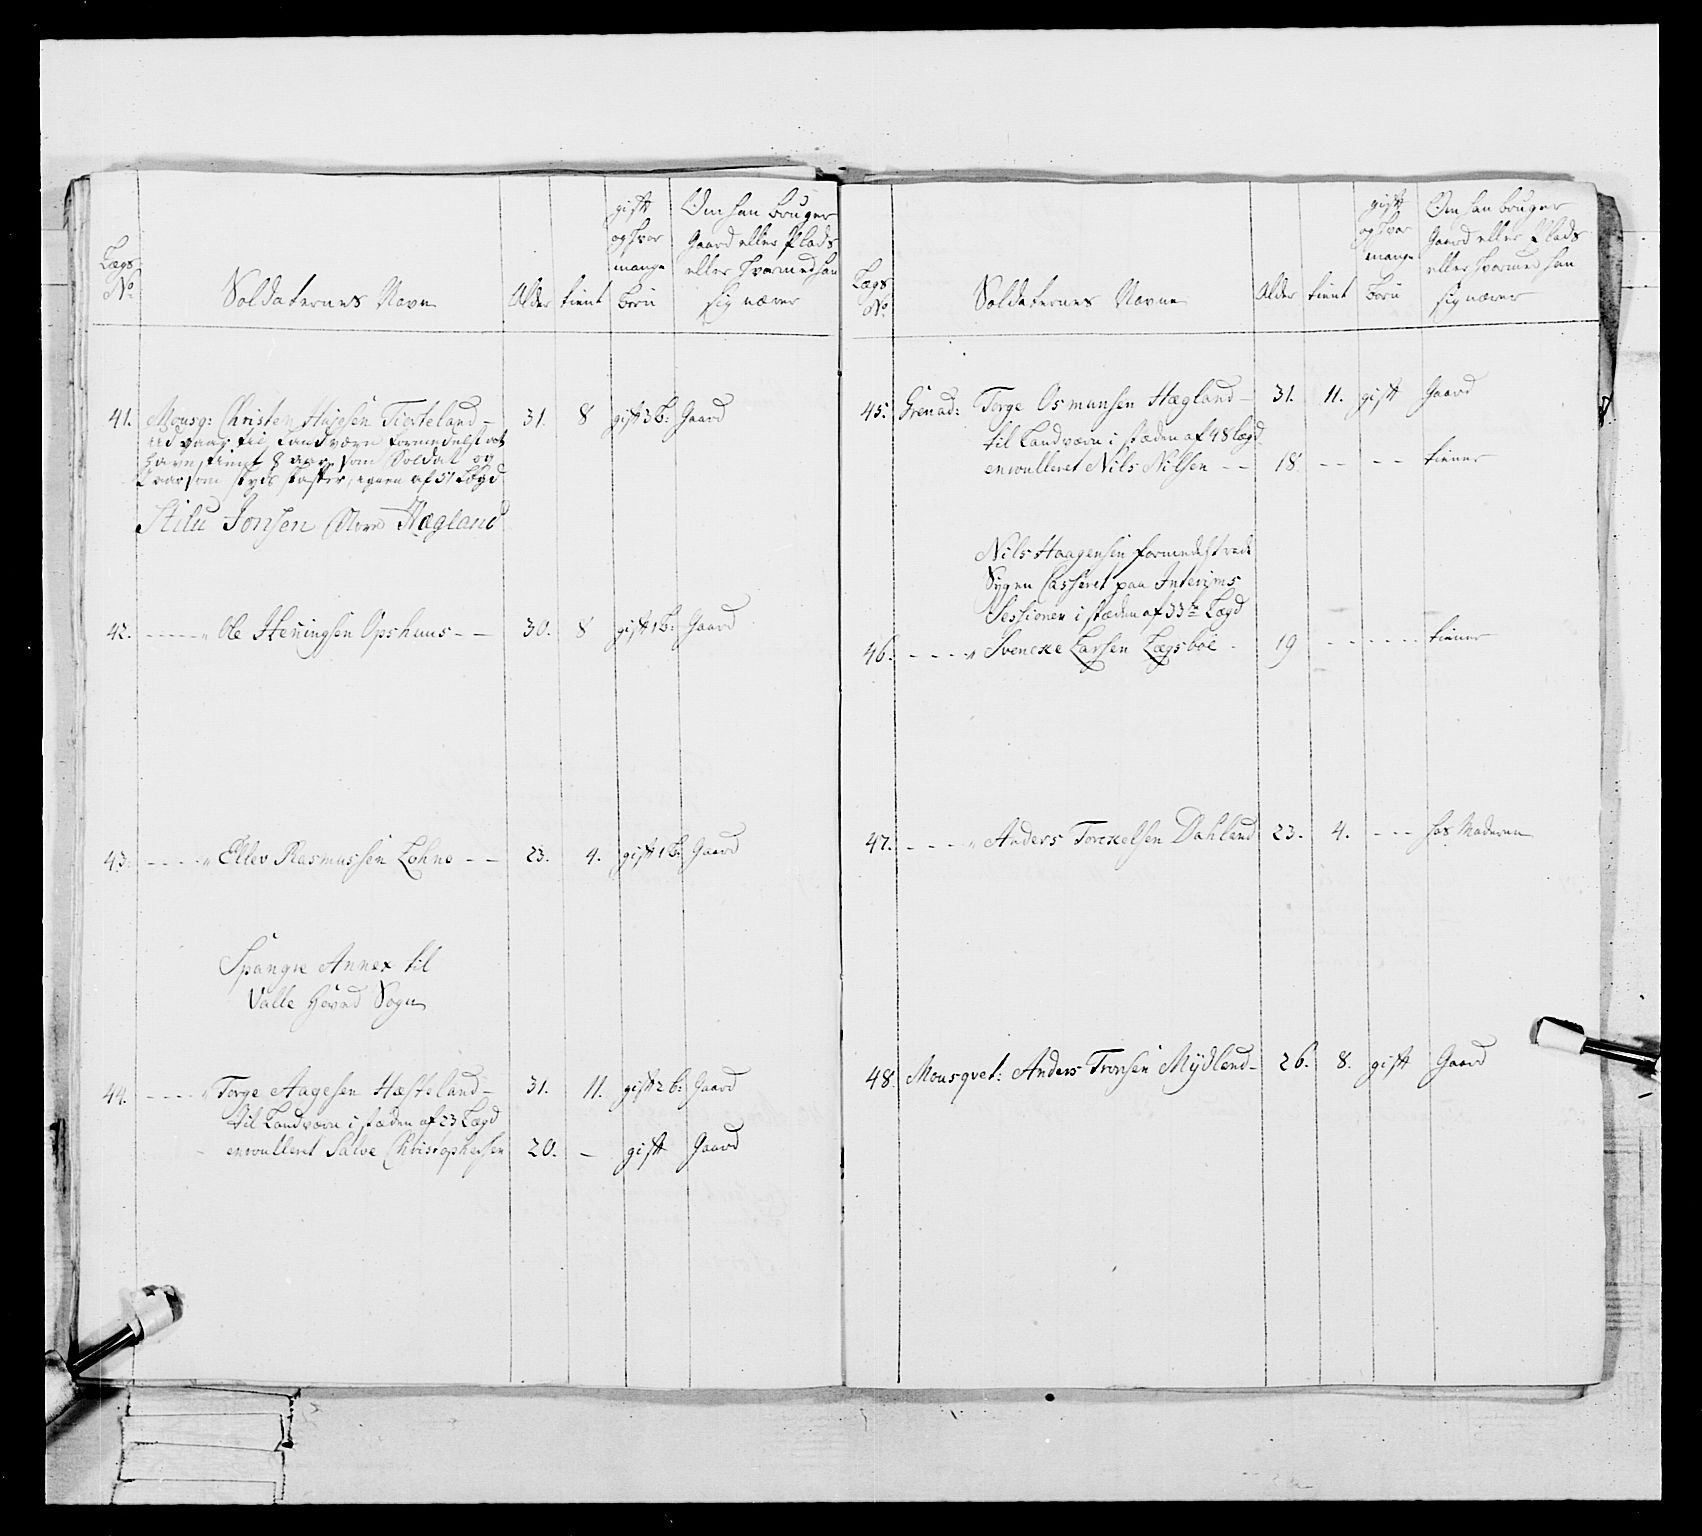 Lægs
No
Soldaternes Navne
Alder
tient
gift
og hvor
mange
børn
Om han bruger
Gaard eller Plads
eller hvormed han
sig nærer
41. Mousq: Christen 31. 8 gift 3 B: Gaard
til Landværn formedelst at
8 aar som Soldat og
af 51 Lægd
Jonsen Hægland
42. - - - - „ Ole Heningsen Opshuus - - 30. 8 gift 1 B: Gaard
43. - - - - „ Ellev Rasmussen Lohne - - 23. 4. gift 1 B: Gaard
Spangre Annex til
Valle Sogn
44. - - - - „ Torge Aagesen Hæsteland - 31. 11. gift 2 b: Gaard
til Landværn i stæden af 23 Lægd
enroulleret Salve Christophersen 20. - gift Gaard
Lægs
No
Soldaternes Navne
Alder
tient
gift
og hvor
mange
børn
Om han bruger
Gaard eller Plads
eller hvormed han
sig nærer
45. Grenad: Torge Osmunsen Hægland - 31. 11. gift Gaard
til Landværn i stæden af 48 Lægd
enroulleret Nils Nilsen - - 18 - - - - tiener
Nils Haagensen formedelst
Sygen Casseret paa Interims
Sessionen i stæden af 33te Lægd
46. - - - - „ Svencke Larsen Lægsböe - 19 - - - - - - tiener
47. - - - - „ Anders Torckelsen Dahland 23. 4. - - - hos Moderen
48. Mousqvet: Anders Tronsen Mÿdland - 26. 8. gift Gaard